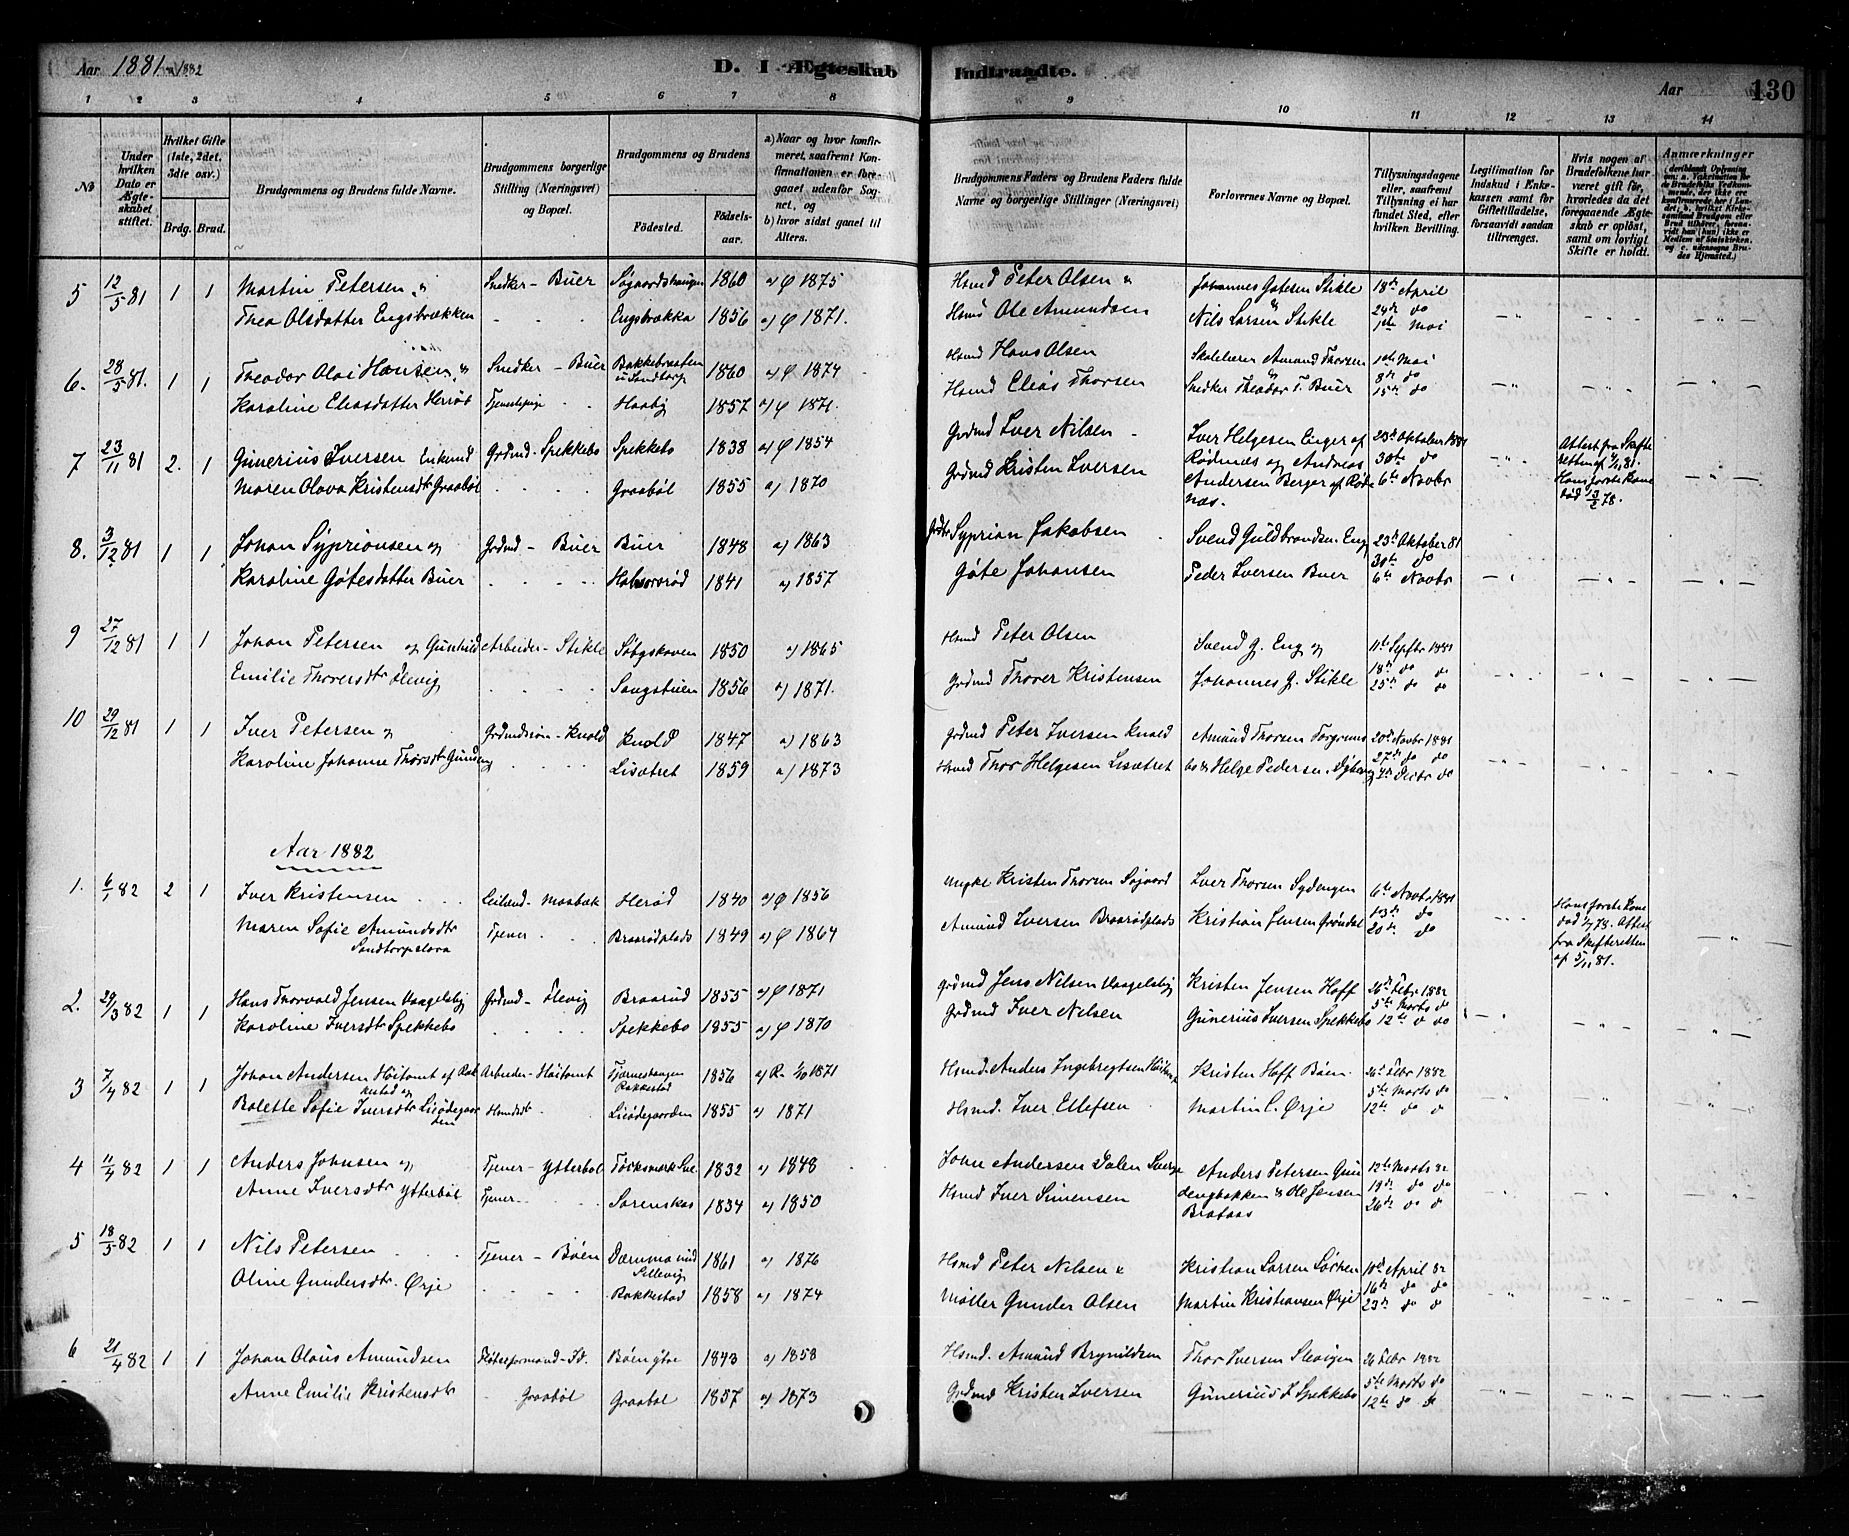 Aar 1881 – 1882 D. I Ægteskab Indtraadte. Aar 130
1 2 3 4 5 6 7 8 9 10 11 12 13 14
№
Under hvilken Dato er Ægteskabet stiftet.
Hvilket Gifte (1ste, 2det, 3die osv.)
Brdg. Brud.
Brudgommens og Brudens fulde Navne.
Brudgommens borgerlige Stilling (Næringsvei) og Bopæl.
Brudgommens og Brudens
Fødested. Fødselsaar.
a) Naar og hvor konfirmeret, saafremt Konfirmationen er foregaaet udenfor Sognet, og
b) hvor sidst gaaet til Alters.
Brudgommens Faders og Brudens Faders fulde Navne og borgerlige Stillinger (Næringsvei)
Forlovernes Navne og Bopæl.
Tillysningsdagene eller, saafremt Tillysning ei har fundet Sted, efter hvilken Bevilling.
Legitimation for Indskud i Enkekassen samt for Giftetilladelse, forsaavidt saadan tiltrænges.
Hvis nogen af Brudefolkene har været gift før, hvorledes da det foregaaende Ægteskab er opløst, samt om lovligt Skifte er holdt.
Anmærkninger
5 12/5 81 1 1 Martin Petersen & Snedker - Buer Søgaardshaugen 1860 a) φ 1875 Hsmd Peter Olsen & Johannes Gøtesen Stikle & 18de April
Thea Olsdatter Engsbrækken Engsbrækka 1856 a) φ 1871. Hsmd Ole Amundsen Nils Larsen Stikle 24de do
1ste Mai
6. 28/5 81. 1 1 Theodor Olai Hansen & Snedker - Buer Bakkebraaten u/Sandtorp 1860 a) φ 1874 Hsmd Hans Olsen Skolelærer Amund Thorsen & 1ste Mai
Karoline Eliasdatter Herrød Tjenestepige Haaby 1857 a) φ 1871. Hsmd Elias Thorsen Snedker Theodor T. Buer 8de do
15de do
7 23/11 81 2. 1 Gunerius Iversen Enkemd Grdmd - Spekkebo Spekkebo 1838 a) φ 1854 Grdmd Iver Nilsen Iver Helgesen Enger af 23de Oktober 1881 Attest fra Skifte
Maren Olava Kristensdtr Graabøl Graabøl 1855 a) 1870 Grdmd Kristen Iversen Rødenæs og Andreas 30te do retten af 4/11 81.
Andersen Berger af Røde 6te Novbr Hans første Kone
næs. død 78.
8. 3/12 81 1 1 Johan Syprionsen og Grdmd - Buer Buer 1848 a) 1863 Syprian Jakobsen Svend Guldbrandsen Eng 23de Oktober 81
Karoline Gøtesdatter Buer 1841 a) 1857 Gøte Johansen Peder Iversen Buer 30te do
6te Novbr
9 27/12 81 1 1 Johan Petersen og Gunhild Arbeider - Stikle Søbyskoven 1850 a) 1865 Hsmd Peter Olsen Svend G. Eng og 11te Septbr 1881
Emilie Thoversdtr Slevig Saugstuen 1856 a) 1871. Grdmd Thover Kristensen Johannes G. Stikle 18de do do
25de do do
10 29/12 81 1 1 Iver Petersen & Grdmdssøn - Knold Knold 1847 a) 1863 Grdmd Peter Iversen Knold Amund Thorsen 20de Novbr 1881
Karoline Johanne Thorsdtr Gundeng Lisætret 1859 a) 1873 Hsmd Thor Helgesen Lisætret Helge Pedersen 27de do do
4de Decbr do
Aar 1882
1. 6/1 82 2 1 Iver Kristensen Leilænd - Mosbæk Herød 1840 a) φ 1856 Kristen Thorsen Søgaard Iver Thorsen Sydengen 6te Novbr 1881 Hans første Kone
Maren Sofie Amundsdtr Tjener Braarødplads 1849 a) φ 1864 Amund Iversen Braarødplads Kristian Jensen Grøndal 13de do død 78. Attest
Sandtorpslora 20de do fra Skifteretten
af 5/11 81.
2. 29/3 82 1 1 Hans Thorvald Jensen Haagelsby Grdmd - Slevig Braarud 1855 a) φ 1871 Grdmd Jens Nilsen Haagelsby Kristen Jensen Hoff 26de Febr 1882
Karoline Iversdtr Spekkebo Spekkebo 1855 a) φ 1870 Grdmd Iver Nilsen Gunerius Iversen Spekkebo 5te Marts do
12te do do
3 7/4 82 1 1 Johan Andersen Høitomt af Rak Arbeider - Høitomt Tjærneshaugen 1856 a) R. 1/10 1871 Hsmd. Anders Ingebregtsen Høitomt Kristen Hoff Bøen 26de Febr 1882
kestad og Rakkestad
Bolette Sofie Iversdtr Lisødegaar Lisødegaarden 1855 a) 1871 Hsmd. Iver Ellefsen Martin C. Ørje 5te Marts do
den 12te do do
4 11/4 82 1 1 Anders Johnsen og Tjener - Ytterbøl Töcksmark Sve. 1832 a) 1848 John Andersen Dalen Sverge Anders Petersen Gun 12te Marts 82
Anne Iversdtr Ytterbøl Tjener Sorenskas 1834 a) 1850 Hsmd Iver Simensen dengbakken & Ole Jensen 19de do do
Brataas 26de do do
5 18/5 82 1 1 Nils Petersen Tjener - Bøen Dæmma und 1861 a) 1876 Hsmd Peter Nilsen & Kristian Larsen 10de April 82
Sillevig
Oline Gundersdtr. Ørje Rakkestad 1858 a) 1874 Møller Gunder Olsen Martin Kristiansen Ørje 16de do do
23de do do
6 21/4 82 1 1 Johan Olaus Amundsen Fløterformand - Bøengtoe 1843 a) 1858 Hsmd. Amund Brynildsen Thor Iversen Slevigen 26 Febr 1882
Anne Emilie Kristensdtr Graabøl Graabøl 1857 a) 1873 Grdmd Kristen Iversen Gunerius I Spekkebo 5te Marts do
12te do do